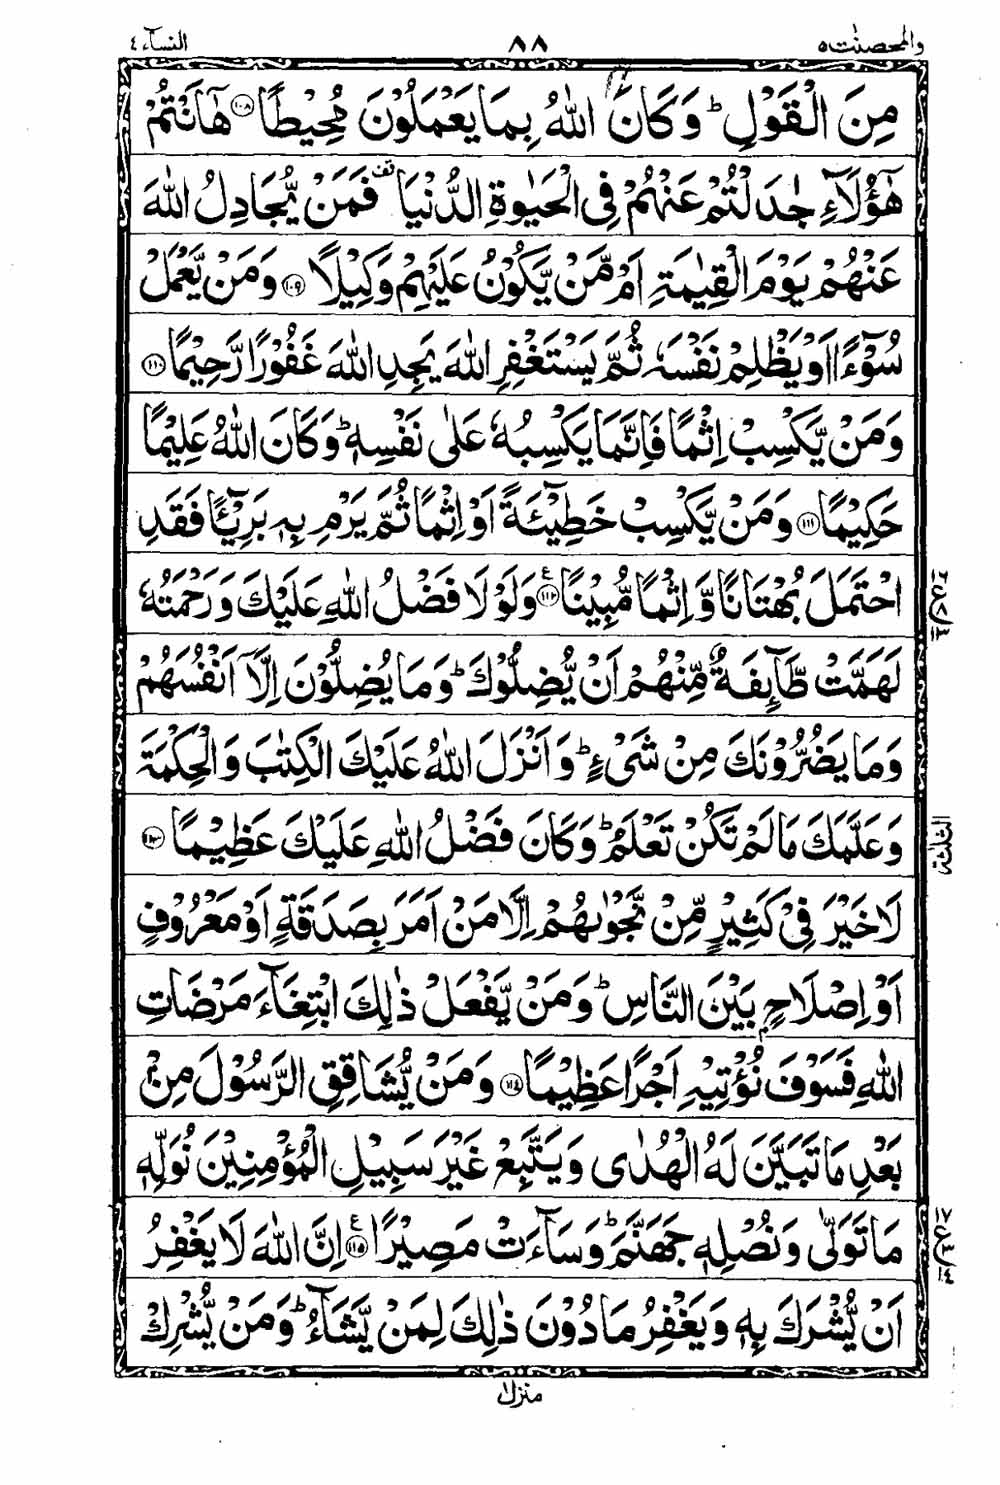 والمحصنٰت٥ ٨٨ النساء٤
مِنَ الْقَوْلِ ؕ وَكَانَ اللّٰهُ بِمَا يَعْمَلُوْنَ مُحِيْطًا ﴿١٠٨﴾ هٰۤاَنْتُمْ
هٰۤؤُلَآءِ جٰدَلْتُمْ عَنْهُمْ فِي الْحَيٰوةِ الدُّنْيَا ۫ فَمَنْ يُّجَادِلُ اللّٰهَ
عَنْهُمْ يَوْمَ الْقِيٰمَةِ اَمْ مَّنْ يَّكُوْنُ عَلَيْهِمْ وَكِيْلًا ﴿١٠٩﴾ وَمَنْ يَّعْمَلْ
سُوْٓءًا اَوْ يَظْلِمْ نَفْسَهٗ ثُمَّ يَسْتَغْفِرِ اللّٰهَ يَجِدِ اللّٰهَ غَفُوْرًا رَّحِيْمًا ﴿١١٠﴾
وَمَنْ يَّكْسِبْ اِثْمًا فَاِنَّمَا يَكْسِبُهٗ عَلٰى نَفْسِهٖ ؕ وَكَانَ اللّٰهُ عَلِيْمًا
حَكِيْمًا ﴿١١١﴾ وَمَنْ يَّكْسِبْ خَطِيْٓئَةً اَوْ اِثْمًا ثُمَّ يَرْمِ بِهٖ بَرِيْٓئًا فَقَدِ
احْتَمَلَ بُهْتَانًا وَّاِثْمًا مُّبِيْنًا ﴿١١٢﴾ ع وَلَوْلَا فَضْلُ اللّٰهِ عَلَيْكَ وَرَحْمَتُهٗ
لَهَمَّتْ طَّآئِفَةٌ مِّنْهُمْ اَنْ يُّضِلُّوْكَ ؕ وَمَا يُضِلُّوْنَ اِلَّاۤ اَنْفُسَهُمْ
وَمَا يَضُرُّوْنَكَ مِنْ شَيْءٍ ؕ وَاَنْزَلَ اللّٰهُ عَلَيْكَ الْكِتٰبَ وَالْحِكْمَةَ
وَعَلَّمَكَ مَا لَمْ تَكُنْ تَعْلَمُ ؕ وَكَانَ فَضْلُ اللّٰهِ عَلَيْكَ عَظِيْمًا ﴿١١٣﴾
الثلٰثة
لَا خَيْرَ فِيْ كَثِيْرٍ مِّنْ نَّجْوٰىهُمْ اِلَّا مَنْ اَمَرَ بِصَدَقَةٍ اَوْ مَعْرُوْفٍ
اَوْ اِصْلَاحٍۭ بَيْنَ النَّاسِ ؕ وَمَنْ يَّفْعَلْ ذٰلِكَ ابْتِغَآءَ مَرْضَاتِ
اللّٰهِ فَسَوْفَ نُؤْتِيْهِ اَجْرًا عَظِيْمًا ﴿١١٤﴾ وَمَنْ يُّشَاقِقِ الرَّسُوْلَ مِنْۢ
بَعْدِ مَا تَبَيَّنَ لَهُ الْهُدٰى وَيَتَّبِعْ غَيْرَ سَبِيْلِ الْمُؤْمِنِيْنَ نُوَلِّهٖ
مَا تَوَلّٰى وَنُصْلِهٖ جَهَنَّمَ ؕ وَسَآءَتْ مَصِيْرًا ﴿١١٥﴾ ع اِنَّ اللّٰهَ لَا يَغْفِرُ
اَنْ يُّشْرَكَ بِهٖ وَيَغْفِرُ مَا دُوْنَ ذٰلِكَ لِمَنْ يَّشَآءُ ؕ وَمَنْ يُّشْرِكْ
منزل١